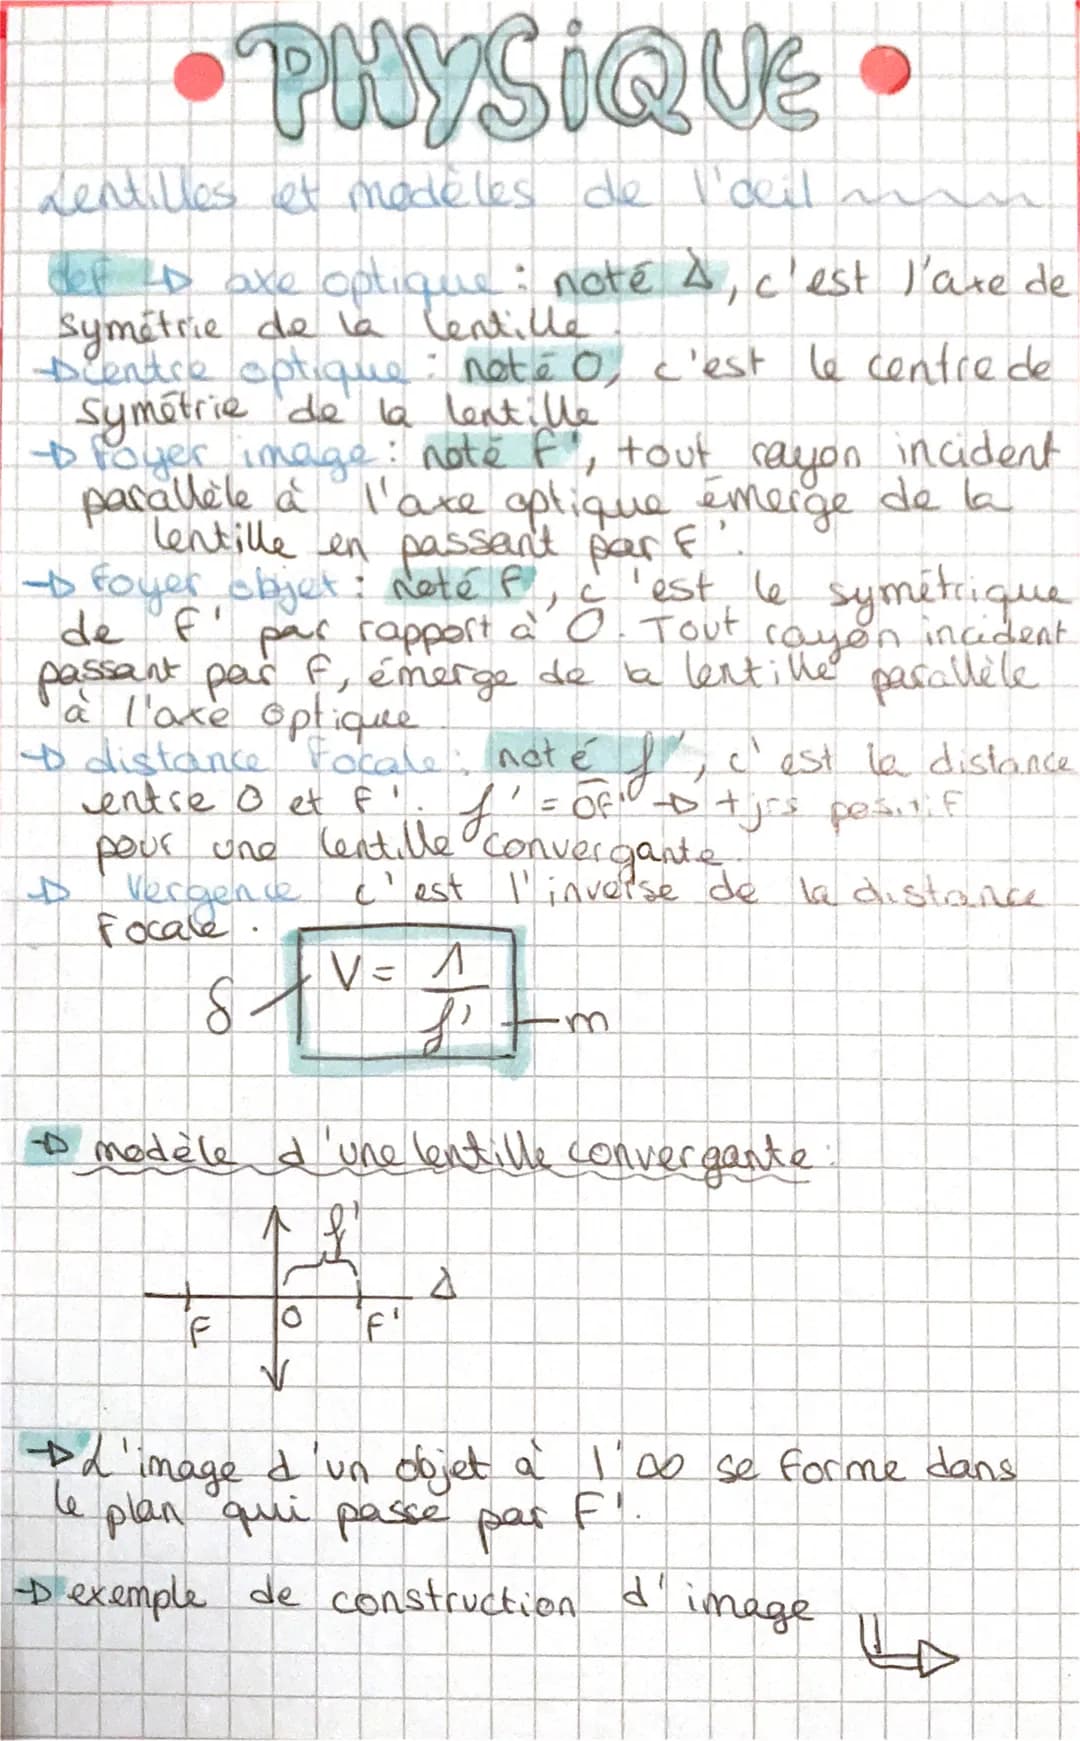 • PHYSIQUE •
Lentilles et modèles de l'œil
def → axe optique : noté Δ, c'est l'axe de
symétrie de la lentille.
→ centre optique : noté O, c'est le centre de
symétrie de la lentille
→ foyer image : noté F', tout rayon incident
parallèle à l'axe optique émerge de la
lentille en passant par F'.
→ Foyer objet : noté F, c'est le symétrique
de F' par rapport à O. Tout rayon incident
passant par F, émerge de la lentille parallèle
à l'axe optique
→ distance focale : noté f', c'est la distance
entre O et F'. f' = OF' → tjrs positif
pour une lentille convergante.
→ Vergence c'est l'inverse de la distance
Focale.
δ V = 1/f' m
→ modèle d'une lentille convergante :
f'
Δ
F O F'
→ L'image d'un objet à l'∞ se forme dans
le plan qui passe par F'.
→ exemple de construction d'image